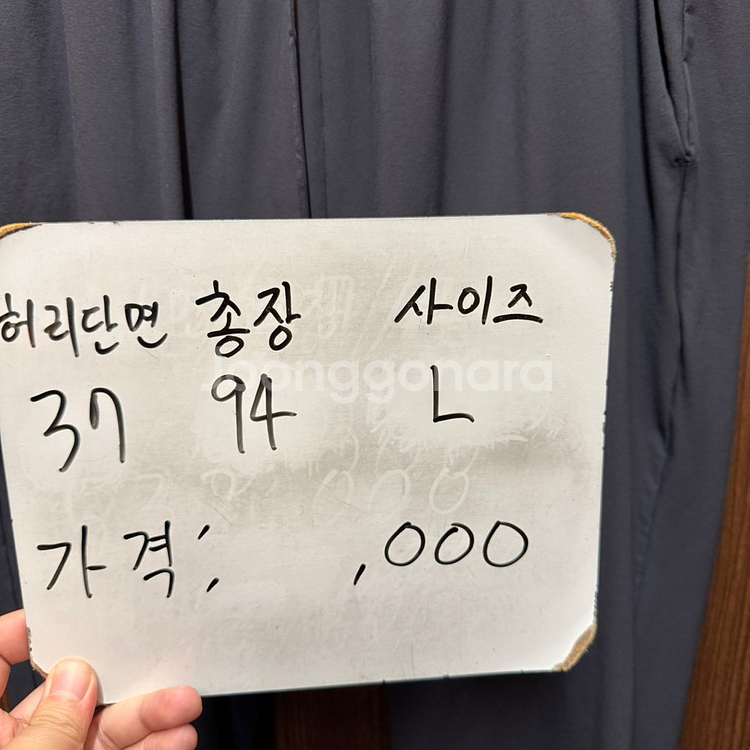 허리단면 총장 사이즈
37 94 L
가격: ,000
Joonggonara